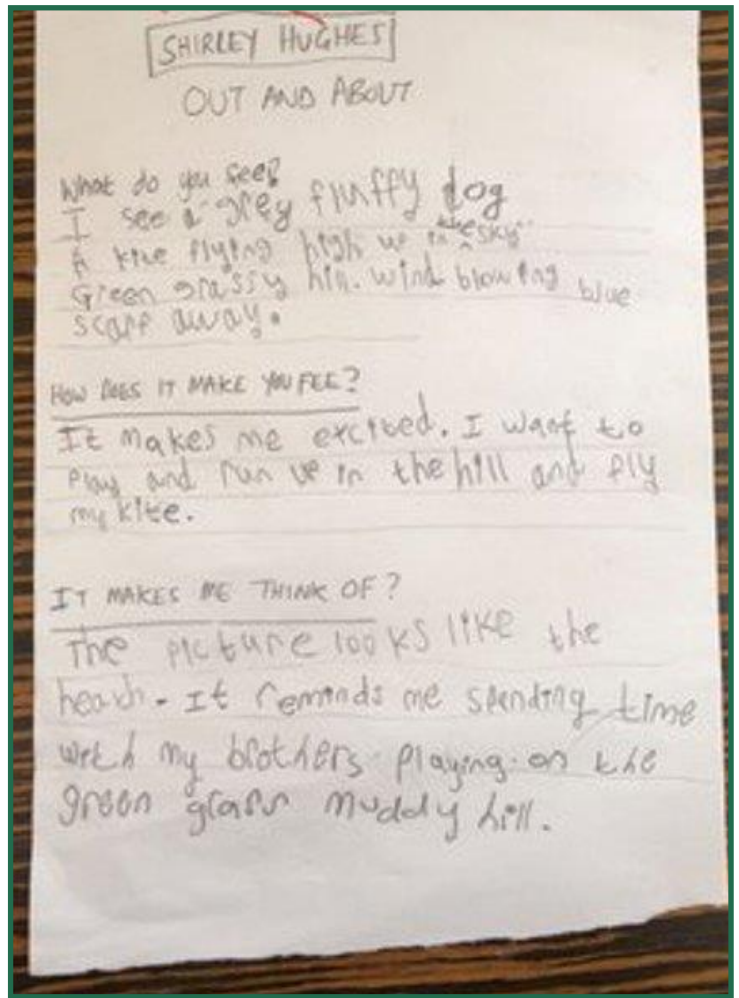 SHIRLEY HUGHES
OUT AND ABOUT
What do you see?
I see a grey fluffy dog
A kite flying high up in the sky
Green grassy hill. wind blowing blue
scarf away.
HOW DOES IT MAKE YOU FEE?
It makes me excited. I want to
Play and run up in the hill and fly
my kite.
IT MAKES ME THINK OF?
The picture looks like the
heath. It reminds me spending time
with my brothers playing on the
green grass muddy hill.